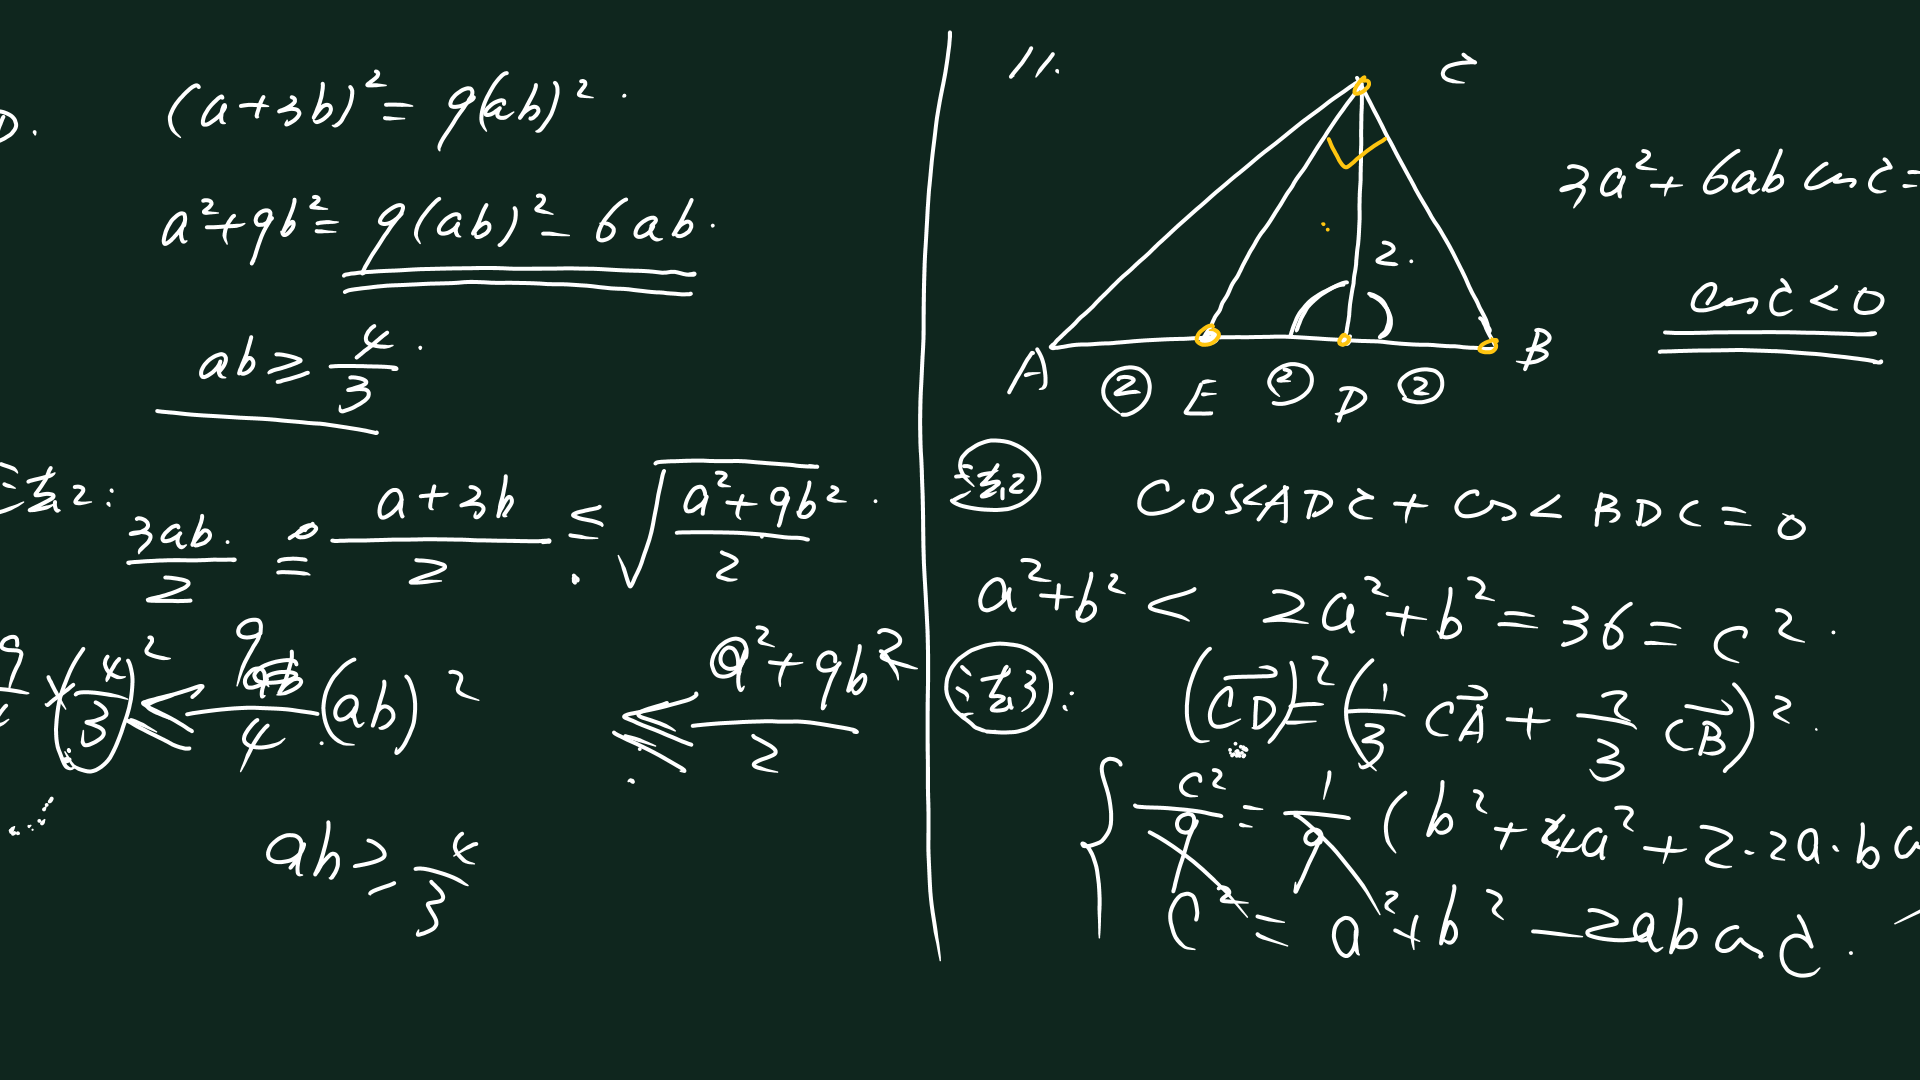 D.
(a+3b)² = 9(ab)².
a²+9b² = 9(ab)² - 6ab.
ab ≥ 4/3.
法2:
3ab/2 = (a+3b)/2 ≤ √((a²+9b²)/2).
×(4/3)² ≤ 9/4 (ab)² ≤ (a²+9b²)/2
ab ≥ 4/3
11.
C
2.
A ② E ② D ② B
3a² + 6ab cos C =
cos C < 0
法2
cos∠ADC + cos∠BDC = 0
a²+b² < 2a²+b² = 36 = c².
法3:
(CD)² = (1/3 CA + 2/3 CB)².
c²/9 = 1/9 (b² + 4a² + 2·2a·b
c² = a²+b² - 2ab cos C.